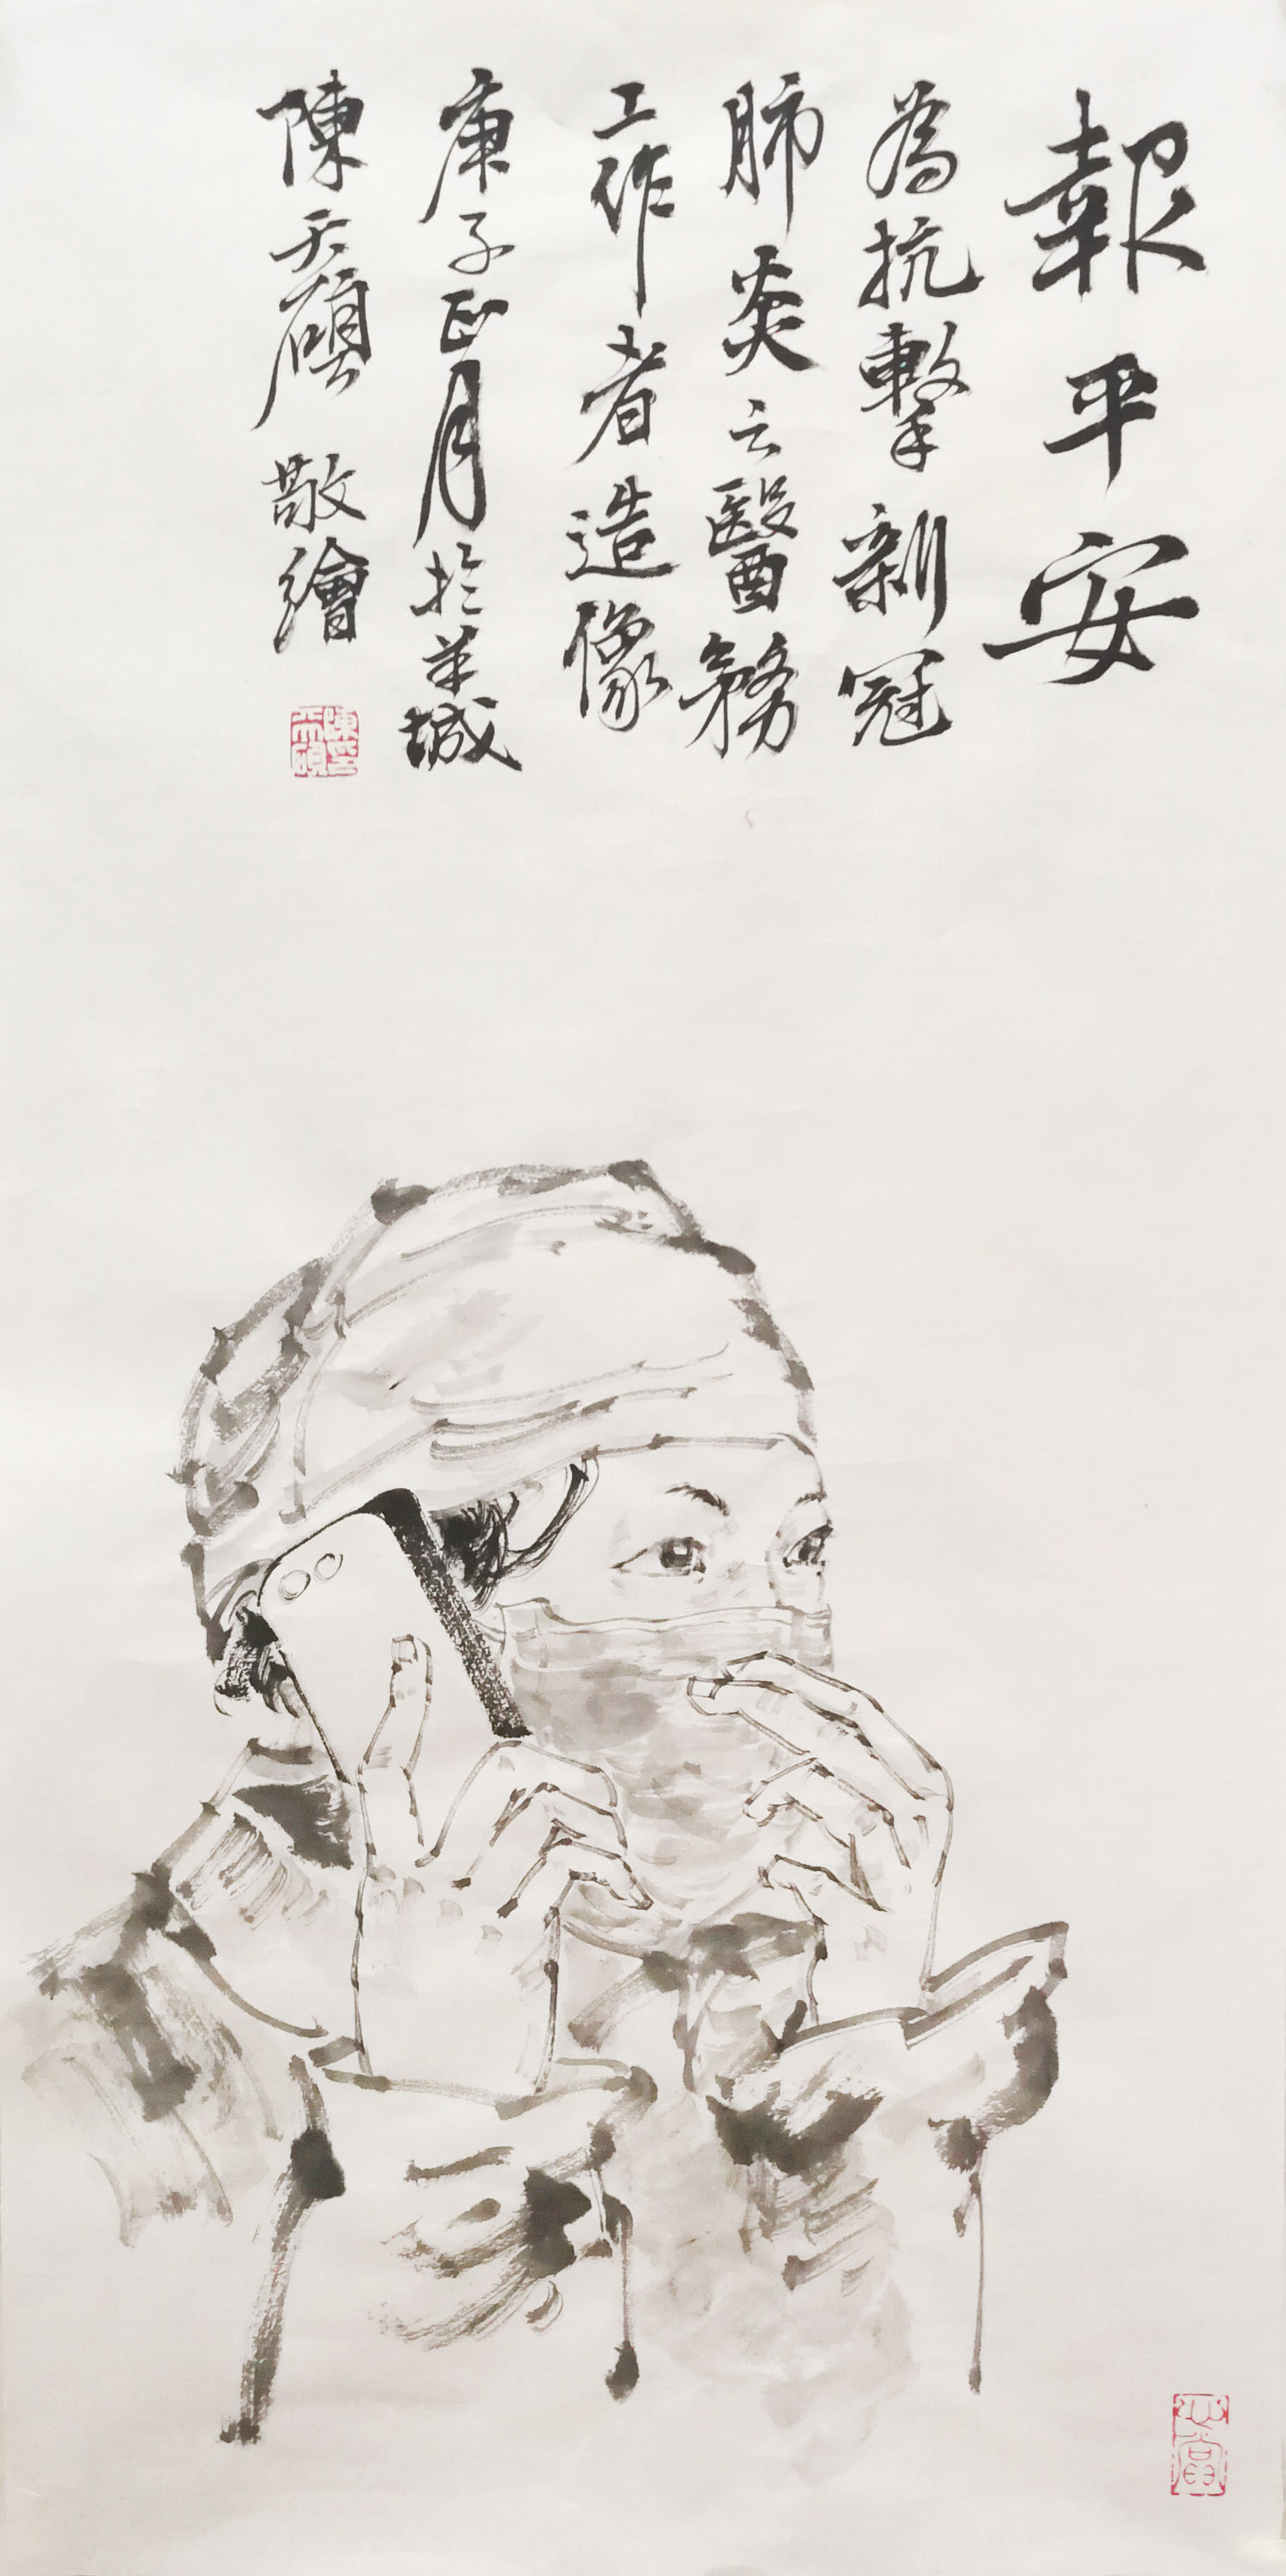 報平安
為抗擊新冠
肺炎之醫務
工作者造像
庚子正月於羊城
陳天碩敬繪
陳天碩印